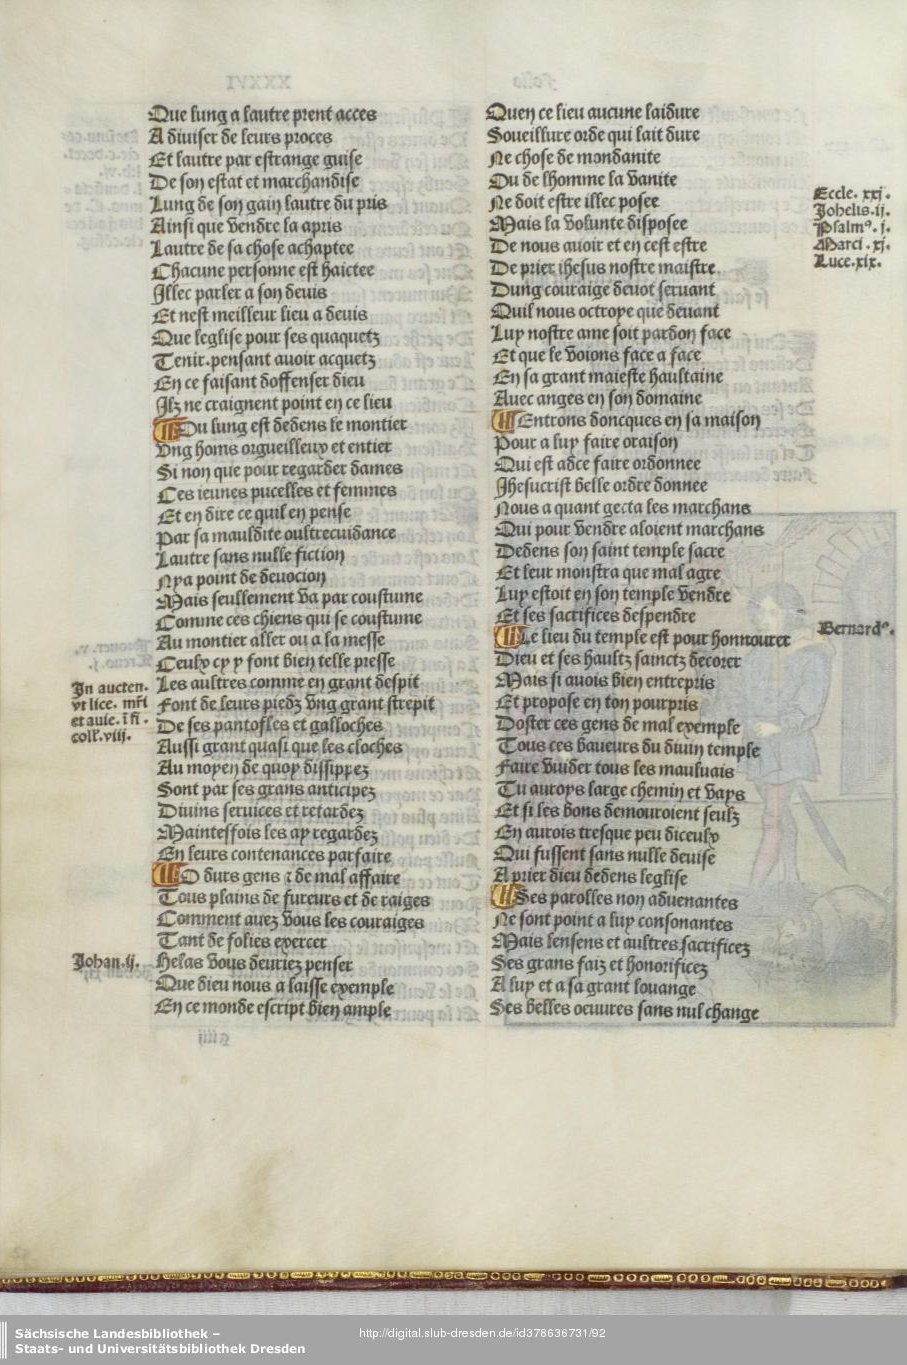 Que lung a lautre prent acces
A diviser de leurs proces
Et lautre par estrange guise
De son estat et marchandise
Lung de son gain lautre du pris
Ainsi que vendre la apris
Lautre de sa chose achaptee
Chacune personne est haictee
Illec parler a son devis
Et nest meilleur lieu a devis
Que leglise pour ses quaquetz
Tenir. pensant avoir acquetz
En ce faisant doffenser dieu
Ilz ne craignent point en ce lieu
Ou lung est dedens le montier
Vng homs orgueilleux et entier
Si non que pour regarder dames
Ces ieunes pucelles et femmes
Et en dire ce quil en pense
Par sa mauldite oultrecuidance
Lautre sans nulle fiction
Nya point de devocion
Mais seullement va par coustume
Comme ces chiens qui se coustume
Au montier aller ou a la messe
Ceulx cy y font bien telle presse
Les aultres comme en grant despit
Font de leurs piedz vng grant strepit
De ses pantofles et galloches
Aussi grant quasi que les cloches
Au moyen de quoy dissippez
Sont par ses grans anticipez
Divins services et retardez
Mainteffois les ay regardez
En leurs contenances parfaire
O durs gens ⁊ de mal affaire
Tous plains de fureurs et de raiges
Comment avez vous les couraiges
Tant de folies exercer
Helas vous devriez penser
Que dieu nous a laisse exemple
En ce monde escript bien ample
In aucten.
vt lice. mr̄i
et auie. ī fi.
coll'. viij.
Johan. ij.
Quen ce lieu aucune laidure
Soueillure orde qui lait dure
Ne chose de mondanite
Ou de lhomme la vanite
Ne doit estre illec posee
Mais la volunte disposee
De nous avoir et en cest estre
De prier ihesus nostre maistre
Dung couraige devot servant
Quil nous octroye que devant
Luy nostre ame soit pardon face
Et que le voions face a face
En sa grant maieste haultaine
Avec anges en son domaine
Entrons doncques en sa maison
Pour a luy faire oraison
Qui est adce faire ordonnee
Jhesucrist belle ordre donnee
Nous a quant gecta les marchans
Qui pour vendre aloient marchans
Dedens son saint temple sacre
Et leur monstra que mal agre
Luy estoit en son temple vendre
Et ses sacrifices despendre
Le lieu du temple est pour honnourer
Dieu et ses haultz sainctz decorer
Mais si avois bien entrepris
Et propose en ton pourpris
Doster ces gens de mal exemple
Tous ces baveurs du divin temple
Faire vuider tous les maulvais
Tu auroys large chemin et vays
Et si les bons demouroient seulz
En aurois tresque peu diceulx
Qui fussent sans nulle devise
A prier dieu dedens leglise
Ses parolles non advenantes
Ne sont point a luy consonantes
Mais lensens et aultres sacrificez
Ses grans faiz et honorificez
A luy et a sa grant louange
Ses belles oeuvres sans nul change
Eccle. xxj.
Johelis. ij.
Psalmo. j.
Marci. xj.
Luce. xix.
Bernardo.
Sächsische Landesbibliothek –
Staats- und Universitätsbibliothek Dresden
http://digital.slub-dresden.de/id378636731/92